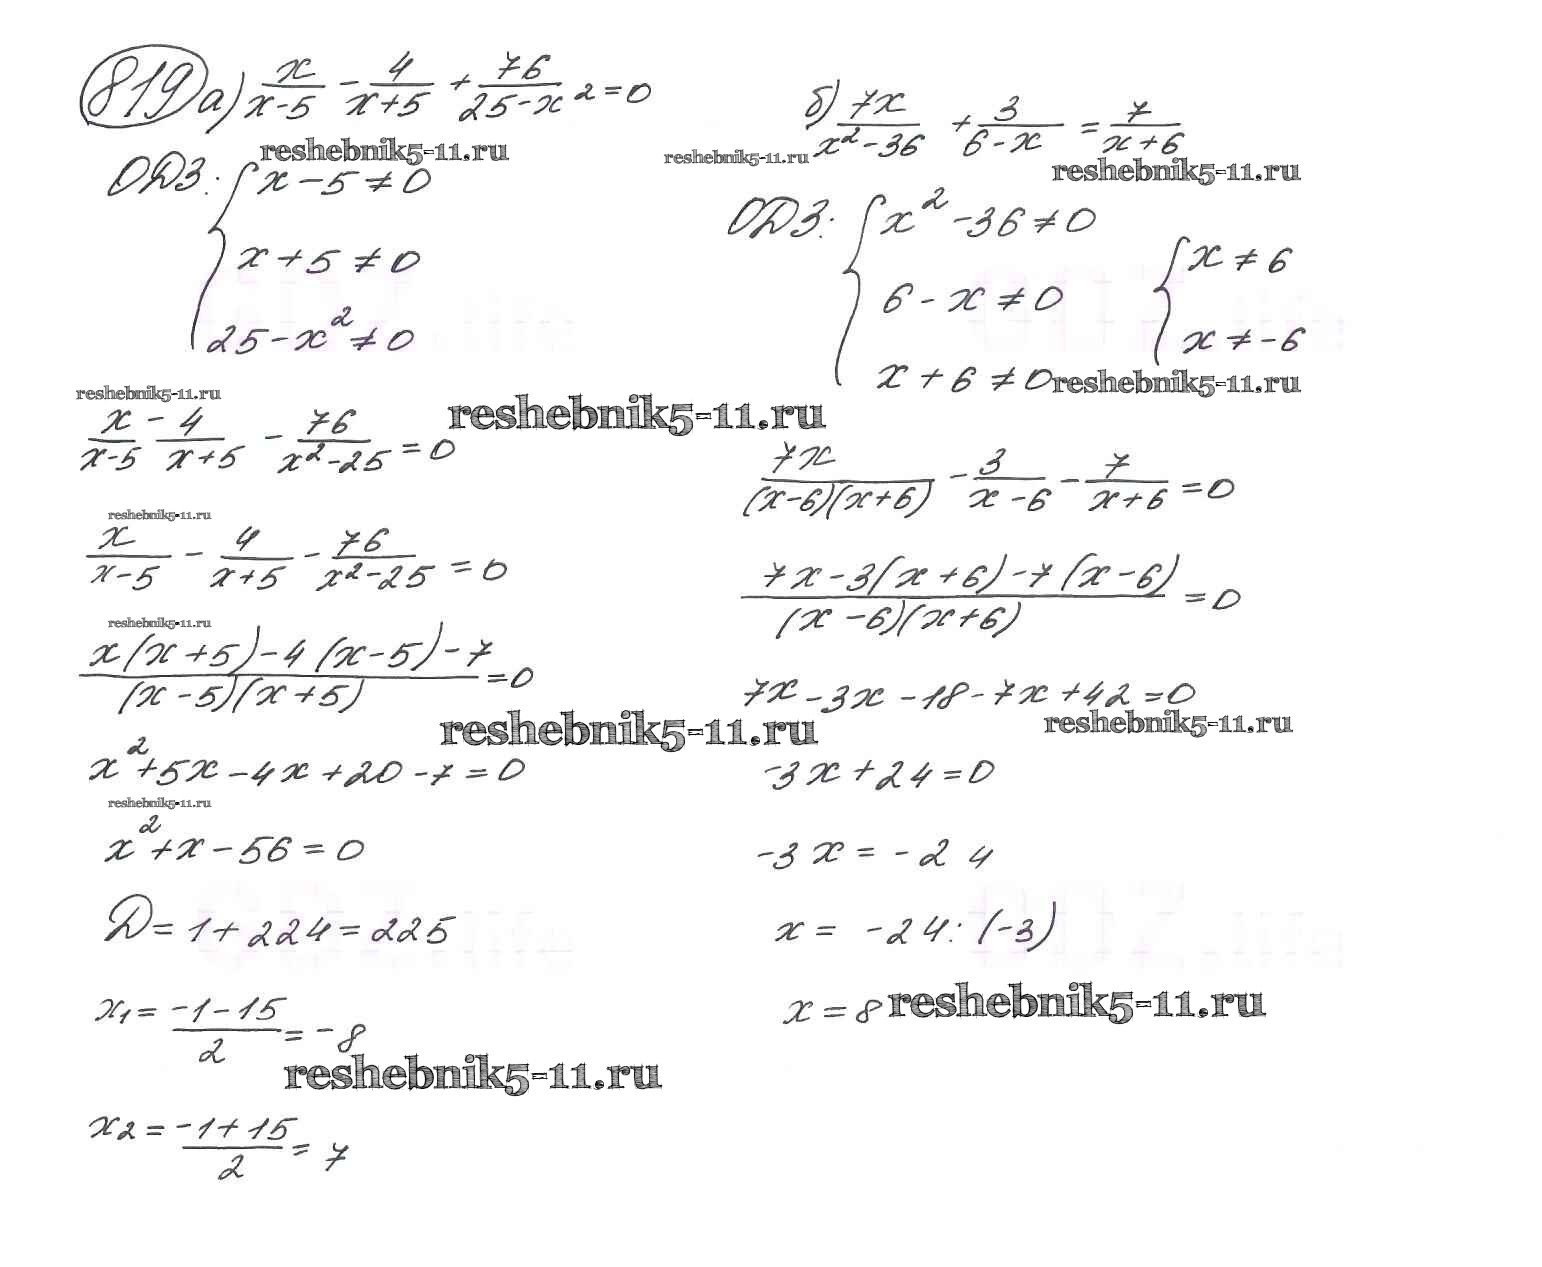 819 а) x/(x-5) - 4/(x+5) + 76/(25-x²) = 0
reshebnik5-11.ru
ОДЗ: { x - 5 ≠ 0
x + 5 ≠ 0
25 - x² ≠ 0
reshebnik5-11.ru
reshebnik5-11.ru
x/(x-5) - 4/(x+5) - 76/(x²-25) = 0
reshebnik5-11.ru
x/(x-5) - 4/(x+5) - 76/(x²-25) = 0
reshebnik5-11.ru
(x(x+5) - 4(x-5) - 7)/((x-5)(x+5)) = 0
reshebnik5-11.ru
x² + 5x - 4x + 20 - 7 = 0
reshebnik5-11.ru
x² + x - 56 = 0
D = 1 + 224 = 225
x₁ = (-1-15)/2 = -8
reshebnik5-11.ru
x₂ = (-1+15)/2 = 7
б) 7x/(x²-36) + 3/(6-x) = 7/(x+6)
reshebnik5-11.ru
reshebnik5-11.ru
ОДЗ: { x² - 36 ≠ 0
6 - x ≠ 0
x + 6 ≠ 0
{ x ≠ 6
x ≠ -6
reshebnik5-11.ru
7x/((x-6)(x+6)) - 3/(x-6) - 7/(x+6) = 0
(7x - 3(x+6) - 7(x-6))/((x-6)(x+6)) = 0
7x - 3x - 18 - 7x + 42 = 0
reshebnik5-11.ru
-3x + 24 = 0
-3x = -24
x = -24 : (-3)
x = 8
reshebnik5-11.ru